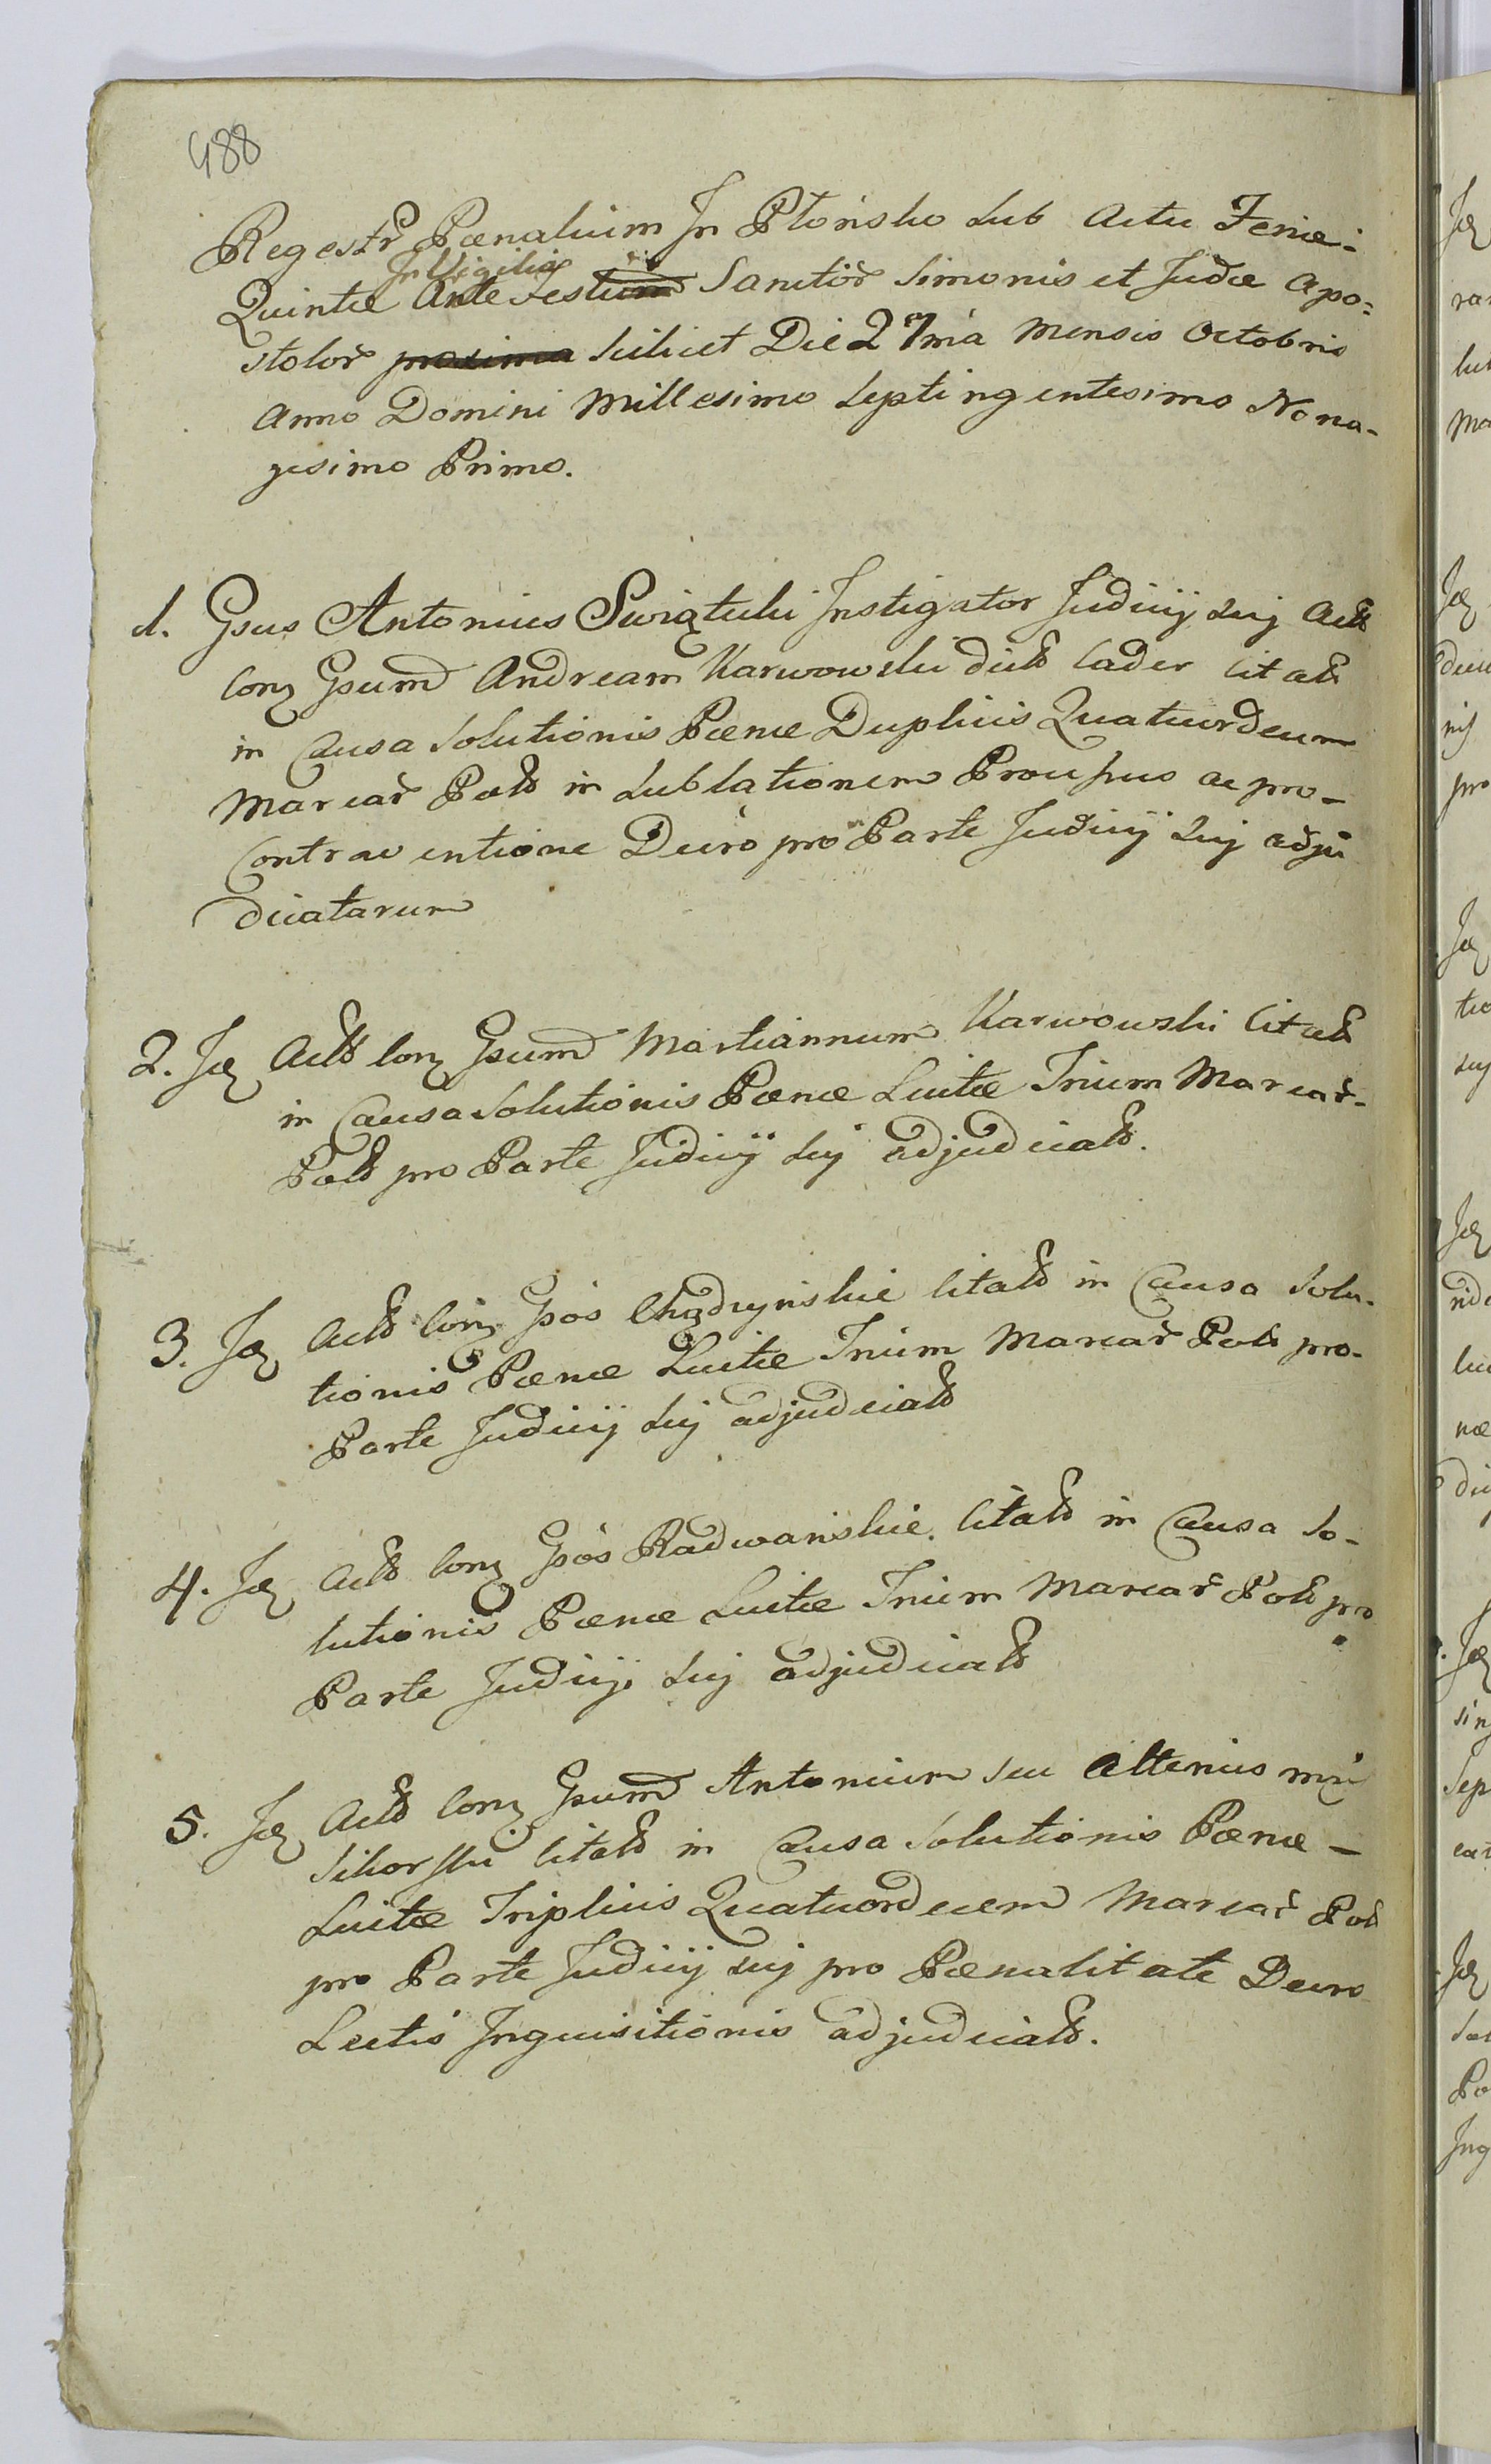 488
Regestr Pœnalium In Płońsko sub Actu Feriæ
In Vigilia
Quintæ Ante Festum Sanctor Simonis et Judæ Apo=
stolor proxima scilicet Die 27ma Mensis Octobris
Anno Domini Millesimo Septingentesimo Nona-
gesimo Primo.
1. Gsus Antonius Swiątecki Instigator Judicij sui Actt
con Gsum Andream Karwowski dictt Cader Citatt
in Causa Solutionis Pœnæ Duplicis Quatuordecim
Marcar Poltt in Sublationem Processus ac pro-
Contraventione Decro pro Parte Judicij sui adju
dicatarum
2. Id Actt con Gsum Martiannum Karwowski Citatt
in Causa Solutionis Pœnæ Luitæ Trium Marcar-
Poltt pro Parte Judicij sui adjudicatt.
3. Id Actt con Gsos Chądzyńskie Citatt in Causa Solu-
tionis Pœnæ Luitæ Trium Marcar Poltt pro-
Parte Judicij sui adjudicatt
4. Id Actt con Gsos Radwańskie Citatt in Causa So-
lutionis Pœnæ Luitæ Trium Marcar Poltt pro
Parte Judicij sui adjudicatt
5. Id Actt con Gsum Antonium seu Alterius
Sikorski Citatt in Causa Solutionis Pœnæ –
Luitæ Triplicis Quatuordecem Marcar Poltt
pro Parte Judicij sui pro Pœnalitate Decro
Lectis Inquisitionis adjudicatt.